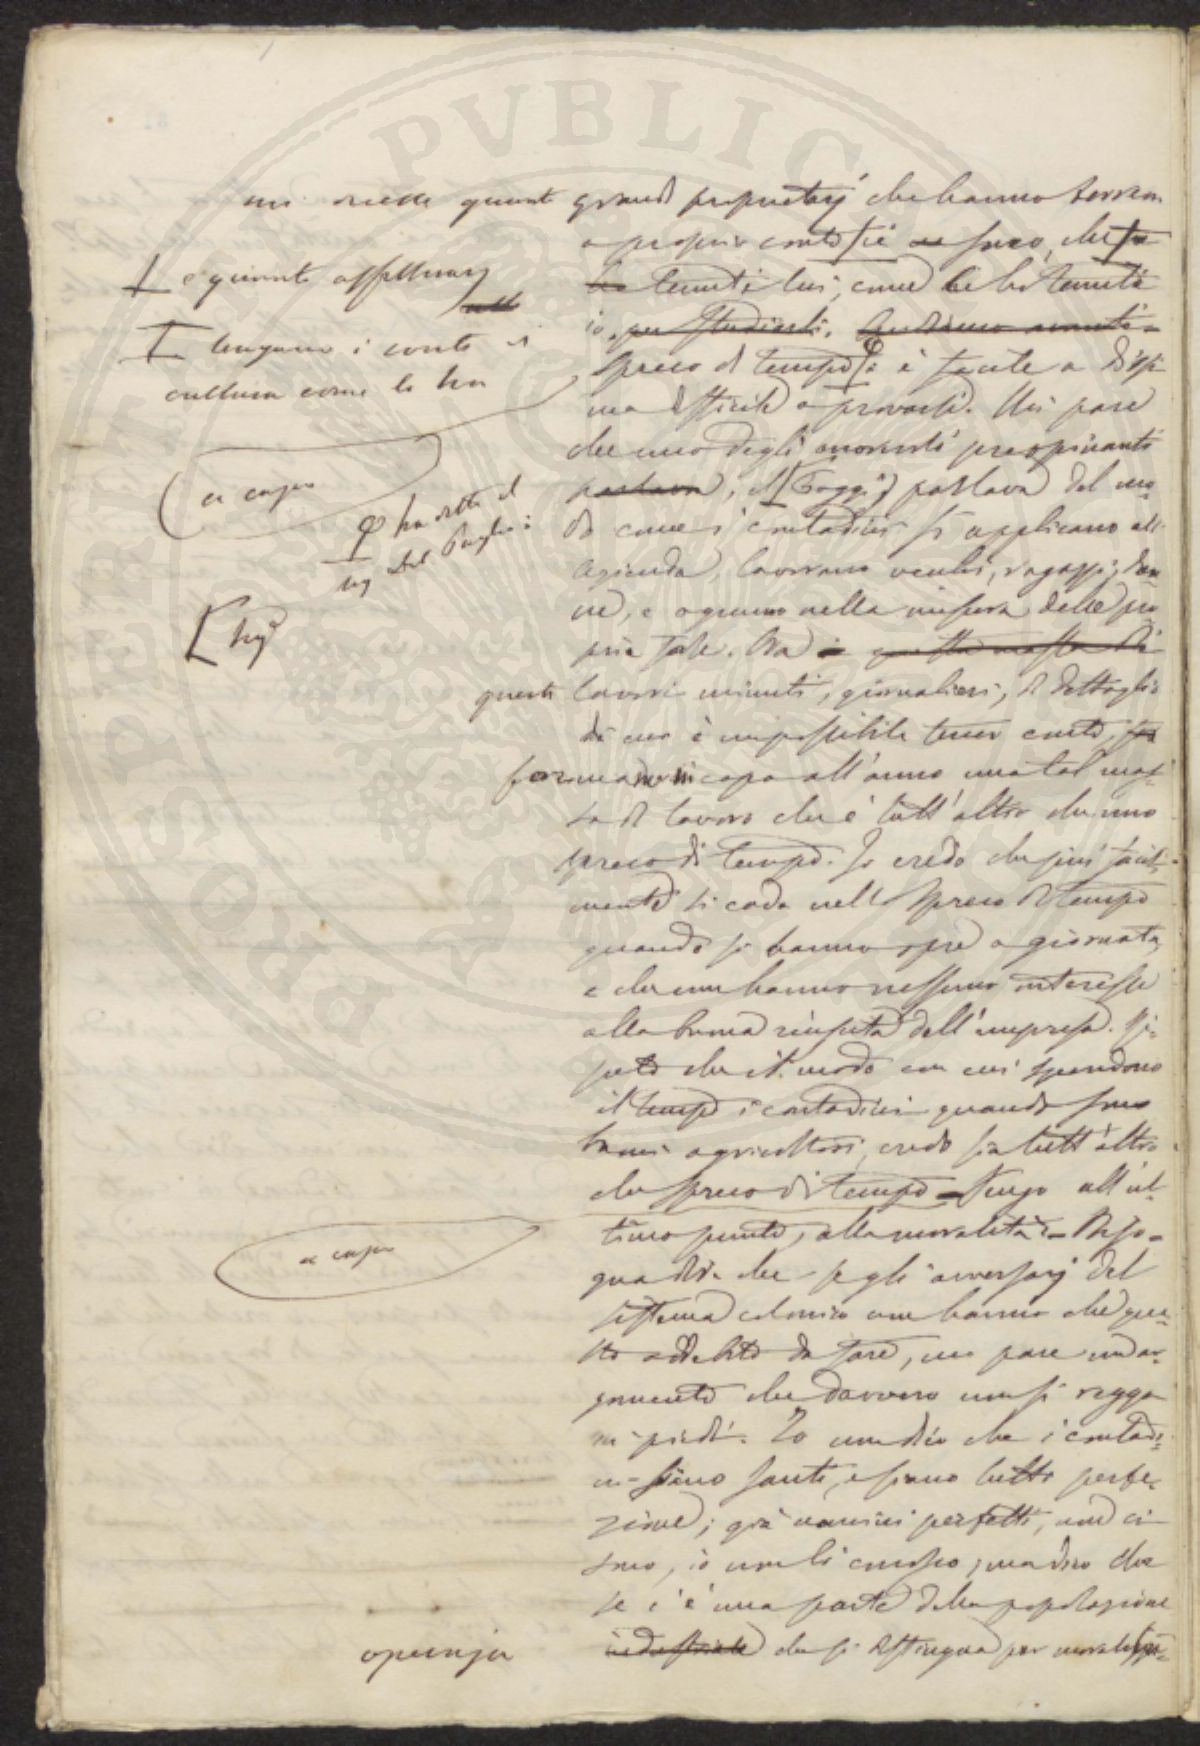 mi quanti grandi proprietarj che hanno terreni
a proprio conto che
tenuti lui, come li ho tenuti
io, per studiarli.
e quanti affittuarj
tengano i conti di
cultura come li ha
Spreco di tempo è facile a dirsi
ma difficile a provarsi. Mi pare
che uno degli onorevoli preopinanti
a capo
parlava, parlava del mo
ha detto il
Sig Del Puglia
do come i contadini si applicano all'
azienda, lavorano vecchi, ragazzi, don
ne, e ognuno nella misura delle pro
prie forze. Ma questa massa di
questi lavori minuti, giornalieri, di dettaglio
di cui è impossibile tener conto,
formano in capo all'anno una tal mas
sa di lavoro che è tutt'altro che uno
spreco di tempo. Io credo che più facil
mente si cada nello spreco di tempo
quando si hanno opre a giornata,
e che non hanno nessuno interesse
alla buona riuscita dell'impresa. Ri
peto che il modo con cui spendono
il tempo i contadini quando sono
buoni agricoltori, credo sia tutt'altro
che spreco di tempo – Vengo all'ul
timo punto, alla moralità –
a capo
che se gli avversarj del
sistema colonico non hanno che que
sto addebito da fare, mi pare un ar
gomento che davvero non si regga
in piedi. Io non dico che i contadi
ni siano santi, e siano tutto perfe
zione; già uomini perfetti, non ci
sono, io non li conosco, ma dico che
se c'è una parte della popolazione
operaja industriale che si distingua per